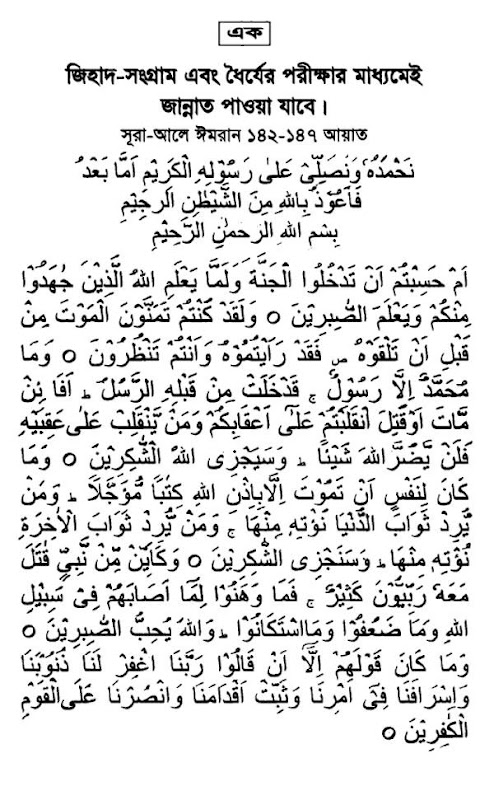 এক
জিহাদ-সংগ্রাম এবং ধৈর্যের পরীক্ষার মাধ্যমেই
জান্নাত পাওয়া যাবে।
সূরা-আলে ঈমরান ১৪২-১৪৭ আয়াত
نَحْمَدُهٗ وَنُصَلِّىْ عَلٰى رَسُوْلِهِ الْكَرِيْمِ اَمَّا بَعْدُ
فَاَعُوْذُ بِاللهِ مِنَ الشَّيْطٰنِ الرَّجِيْمِ
بِسْمِ اللهِ الرَّحْمٰنِ الرَّحِيْمِ
اَمْ حَسِبْتُمْ اَنْ تَدْخُلُوا الْجَنَّةَ وَلَمَّا يَعْلَمِ اللهُ الَّذِيْنَ جٰهَدُوْا
مِنْكُمْ وَيَعْلَمَ الصّٰبِرِيْنَ ○ وَلَقَدْ كُنْتُمْ تَمَنَّوْنَ الْمَوْتَ مِنْ
قَبْلِ اَنْ تَلْقَوْهُ ۪ فَقَدْ رَاَيْتُمُوْهُ وَاَنْتُمْ تَنْظُرُوْنَ ○ وَمَا
مُحَمَّدٌ اِلَّا رَسُوْلٌ ۚ قَدْخَلَتْ مِنْ قَبْلِهِ الرُّسُلُ ؕ اَفَا ئِنْ
مَّاتَ اَوْقُتِلَ انْقَلَبْتُمْ عَلٰى اَعْقَابِكُمْ وَمَنْ يَّنْقَلِبْ عَلٰى عَقِبَيْهِ
فَلَنْ يَّضُرَّاللهَ شَيْئًا ؕ وَسَيَجْزِى اللهُ الشّٰكِرِيْنَ ○ وَمَا
كَانَ لِنَفْسٍ اَنْ تَمُوْتَ اِلَّابِاِذْنِ اللهِ كِتٰبًا مُّؤَجَّلًا ؕ وَمَنْ
يُّرِدْ ثَوَابَ الدُّنْيَا نُؤْتِهٖ مِنْهَا ۚ وَمَنْ يُّرِدْ ثَوَابَ الْاٰخِرَةِ
نُؤْتِهٖ مِنْهَا ؕ وَسَنَجْزِى الشّٰكِرِيْنَ ○ وَكَاَيِّنْ مِّنْ نَّبِيٍّ قٰتَلَ
مَعَهٗ رِبِّيُّوْنَ كَثِيْرٌ ۚ فَمَا وَهَنُوْا لِمَا اَصَابَهُمْ فِىْ سَبِيْلِ
اللهِ وَمَا ضَعُفُوْا وَمَااسْتَكَانُوْا ؕ وَاللهُ يُحِبُّ الصّٰبِرِيْنَ ○
وَمَا كَانَ قَوْلَهُمْ اِلَّا اَنْ قَالُوْا رَبَّنَا اغْفِرْ لَنَا ذُنُوْبَنَا
وَاِسْرَافَنَا فِىْ اَمْرِنَا وَثَبِّتْ اَقْدَامَنَا وَانْصُرْنَا عَلَى الْقَوْمِ
الْكٰفِرِيْنَ ○